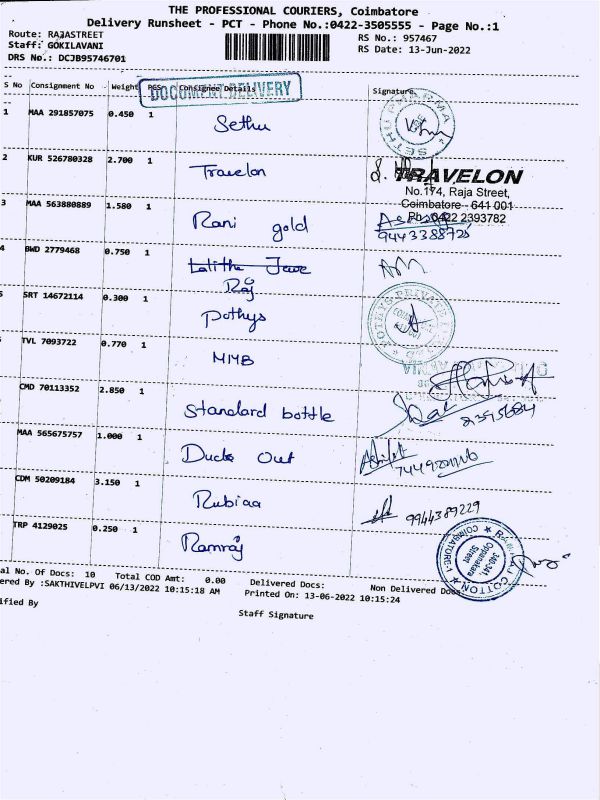 THE PROFESSIONAL COURIERS, Coimbatore
Delivery Runsheet - PCT - Phone No.:0422-3505555 - Page No.:1
Route: RAJASTREET
RS No.: 957467
Staff: GOKILAVANI
RS Date: 13-Jun-2022
DRS No.: DCJB95746701
DOCUMENT DELIVERY
S No Consignment No Weight PCS Consignee Details Signature
1 MAA 291857075 0.450 1 Sethu
SETHU PHARMA
2 KUR 526780328 2.700 1 Travelon
TRAVELON
No.174, Raja Street,
Coimbatore - 641 001
Ph : 0422 2393782
3 MAA 563880889 1.580 1 Rani gold
9443388725
4 BWD 2779468 0.750 1 Lalitha Jewe
Raj
SRT 14672114 0.300 1 Pothys
POTHYS PRIVATE
TVL 7093722 0.770 1 MMB
CMD 70113352 2.850 1 Standard bottle
2395684
MAA 565675757 1.000 1 Ducks Out
CDM 50209184 3.150 1 Rubiaa
9944389229
TRP 4129025 0.250 1 Ramraj
RAMRAJ COTTON
COIMBATORE-1
340-341,
Oppanakara
Street
al No. Of Docs: 10 Total COD Amt: 0.00 Delivered Docs: Non Delivered Docs
ered By :SAKTHIVELPVI 06/13/2022 10:15:18 AM Printed On: 13-06-2022 10:15:24
ified By
Staff Signature